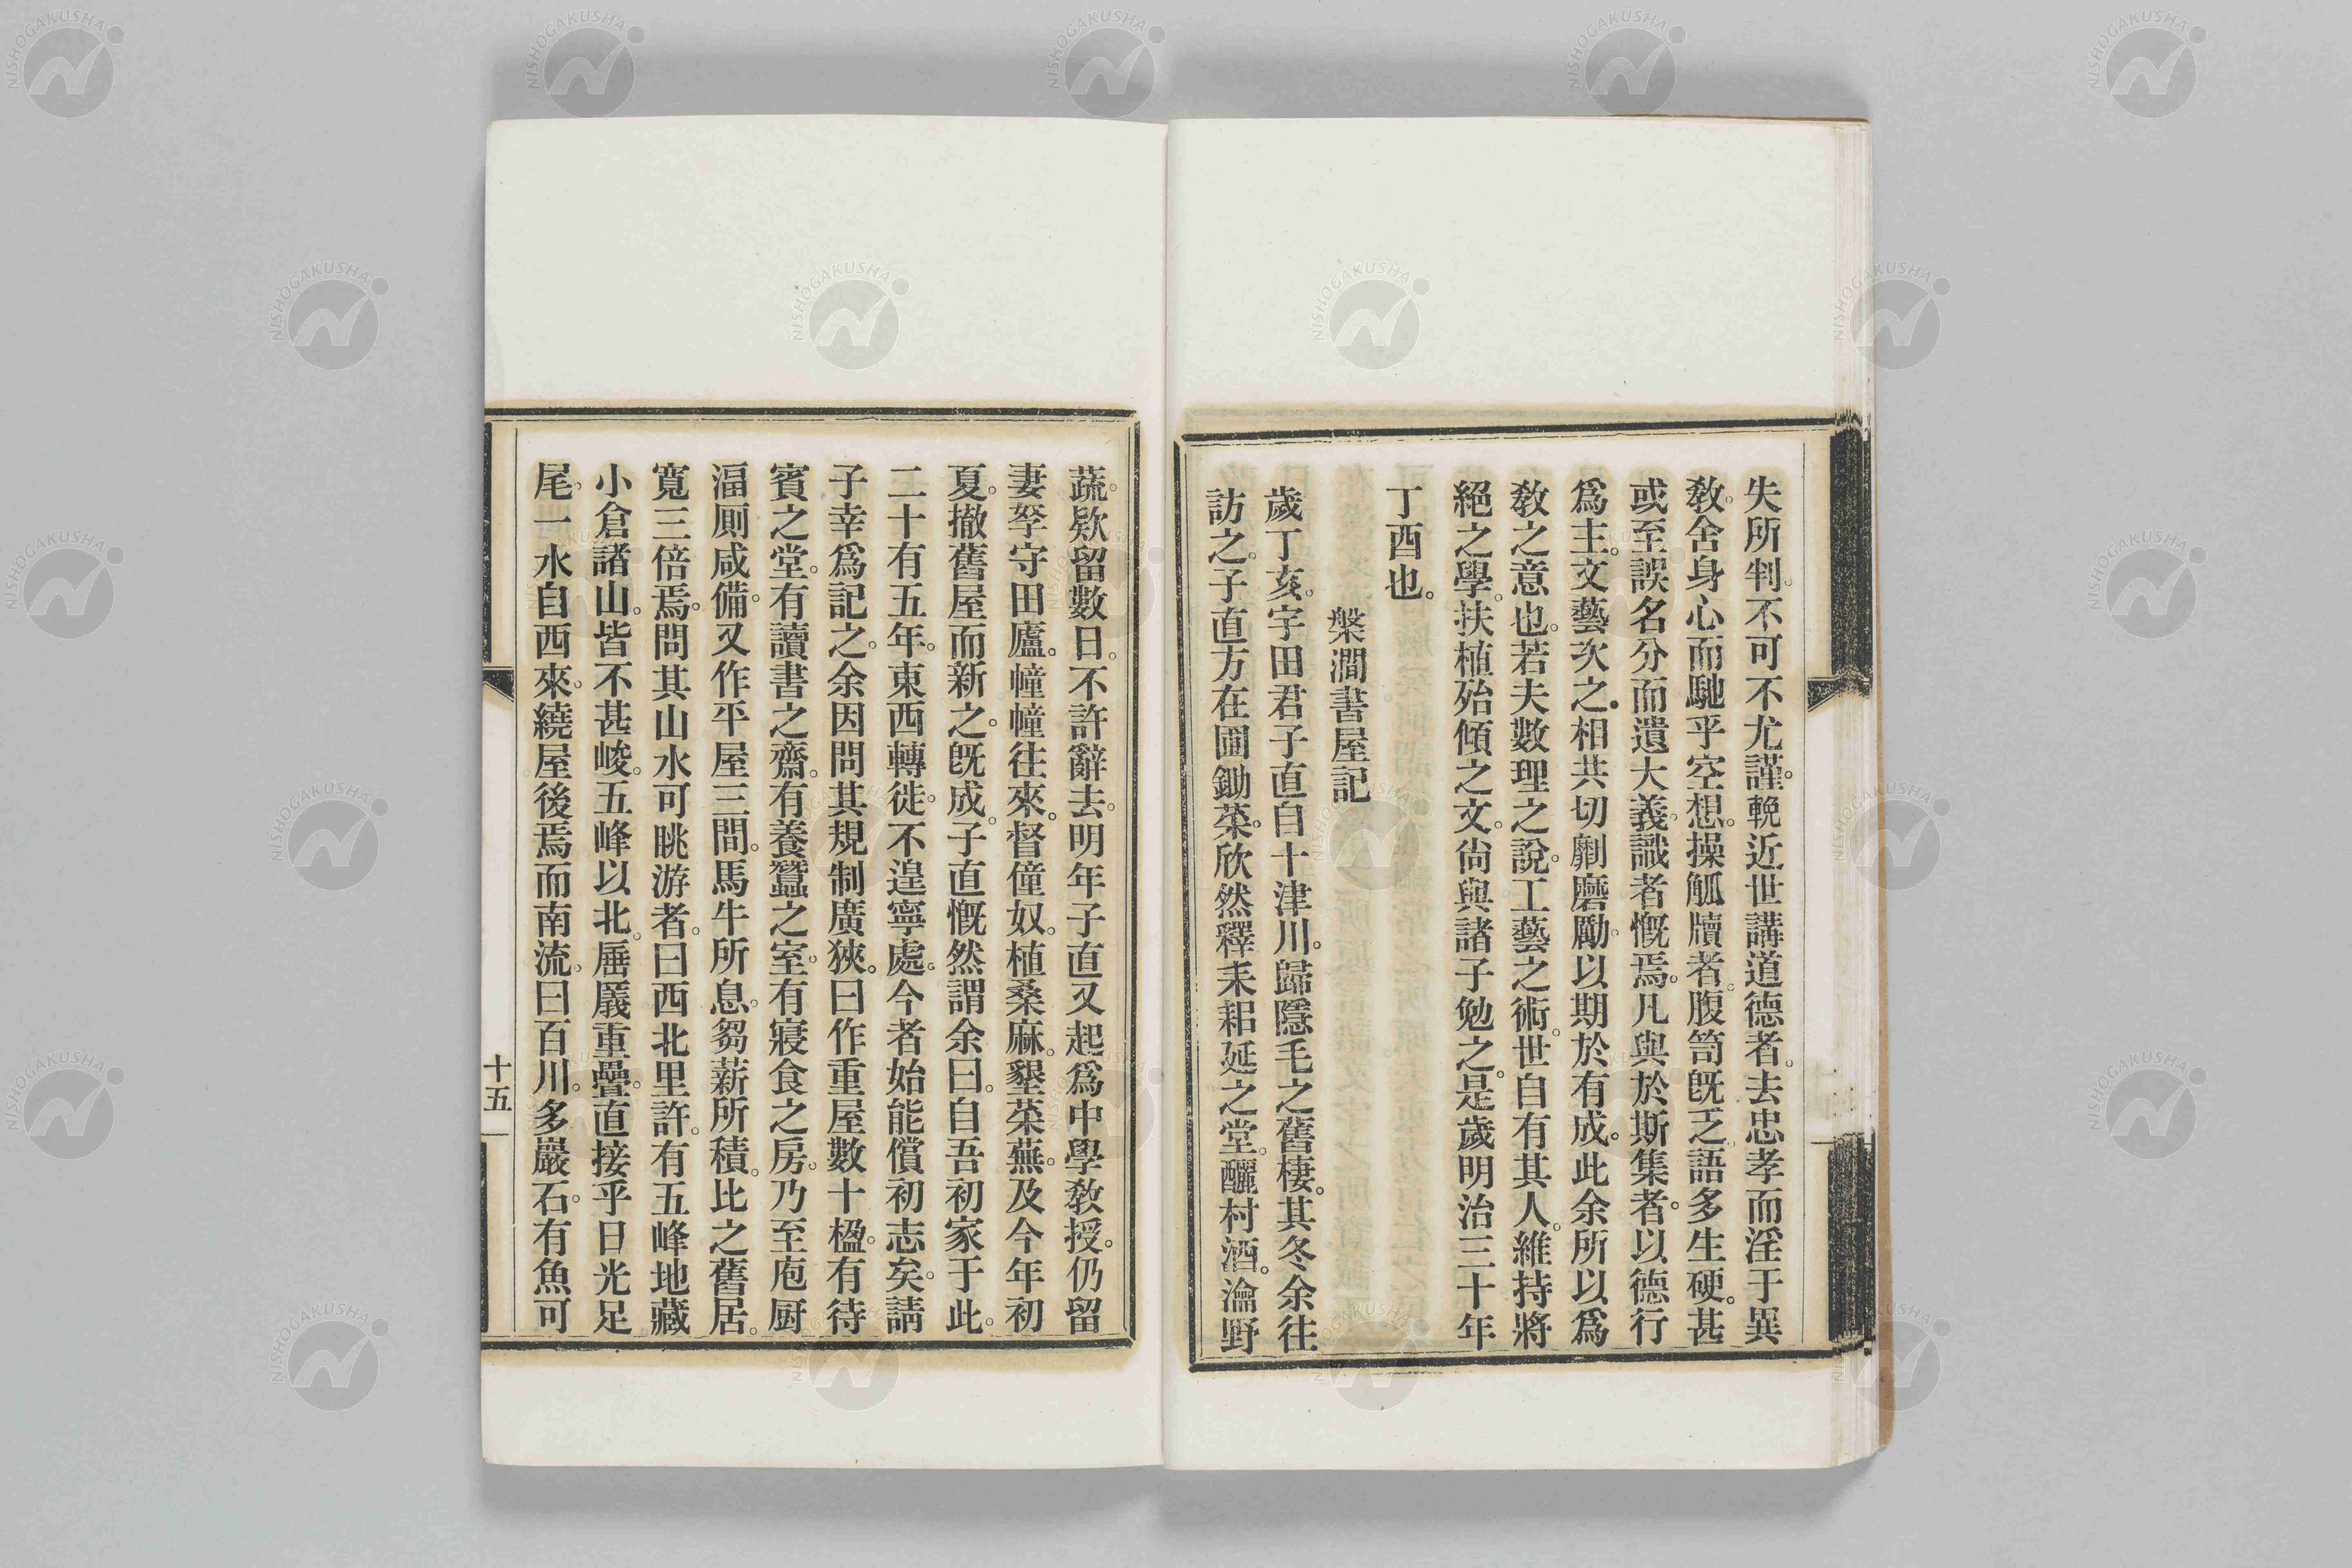 失所判。不可不尤謹。輓近世講道德者。去忠孝而淫于異
敎。舍身心而馳乎空想。操觚牘者。腹笥既乏。語多生硬。甚
或至誤名分而遺大義。識者慨焉。凡與於斯集者。以德行
爲主。文藝次之。相共切劘磨勵。以期於有成。此余所以爲
敎之意也。若夫數理之說。工藝之術。世自有其人。維持將
絕之學。扶植殆傾之文。尙與諸子勉之。是歲明治三十年
丁酉也。
槃澗書屋記
歲丁亥。宇田君子直自十津川。歸隱毛之舊棲。其冬余往
訪之。子直方在圃鋤菜。欣然釋耒耜延之堂。釃村酒。瀹野
蔬。欵留數日。不許辭去。明年子直又起爲中學敎授。仍留
妻孥守田廬。幢幢往來。督僮奴。植桑麻。墾菜蕪。及今年初
夏。撤舊屋而新之。既成。子直慨然謂余曰。自吾初家于此。
二十有五年。東西轉徙。不遑寧處。今者始能償初志矣。請
子幸爲記之。余因問其規制廣狹。曰作重屋數十楹。有待
賓之堂。有讀書之齋。有養蠶之室。有寢食之房。乃至庖厨
湢厠咸備。又作平屋三間。馬牛所息。芻薪所積。比之舊居。
寬三倍焉。問其山水可眺游者。曰西北里許。有五峰地藏
小倉諸山。皆不甚峻。五峰以北。厜㕒重疊。直接乎日光足
尾。一水自西來。繞屋後焉而南流。曰百川。多巖石。有魚可
十五
NISHOGAKUSHA